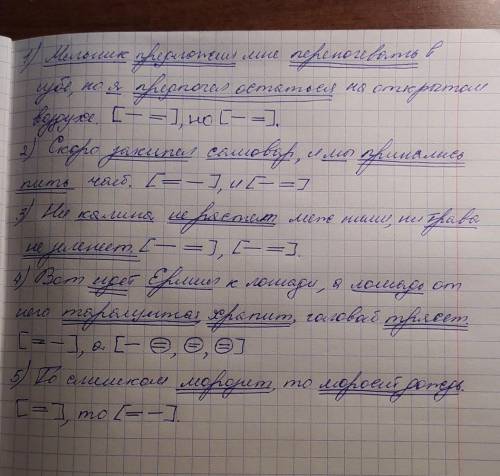 1) Мельник предложил мне переночевать в
избе, но я предпочел остаться на открытом
воздухе. [— =], но [— =].
2) Скоро закипел самовар, и мы принялись
пить чай. [= —], и [— =]
3) Ни калина не растет меж ними, ни трава
не зеленеет. [— =], [— =].
4) Вот идет Ермил к лошади, а лошадь от
него таращится, храпит, головой трясет
[= —], а [— =, =, =]
5) То слишком морозит, то моросит дождь.
[=], то [= —].